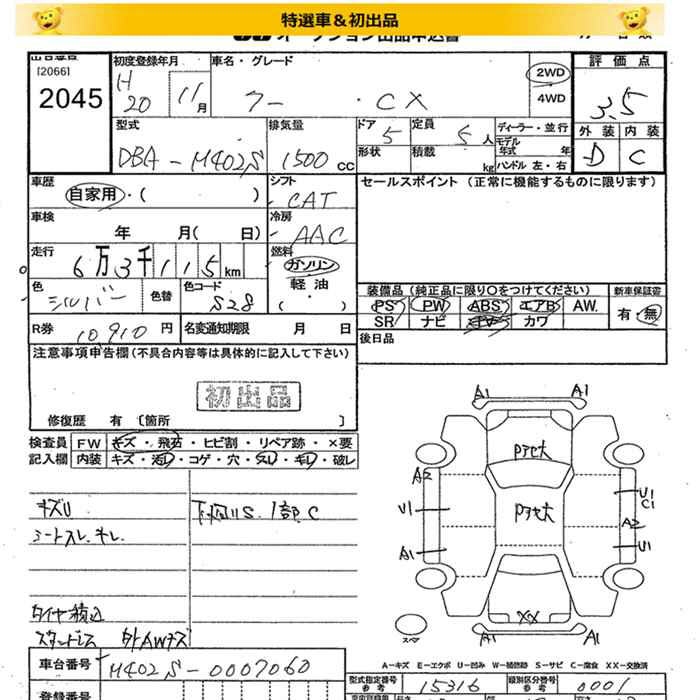 特選車＆初出品
[2066]
2045
初度登録年月
H 20 11月
車名・グレード
・CX
2WD
4WD
評価点
3.5
外装 内装
D C
型式
DBA-M402S
排気量
1500 CC
ドア
5
形状
定員
5 人
積載
kg
ディーラー・並行
モデル年式 年
ハンドル 左・右
車歴
自家用・( )
シフト
CAT
車検
年 月( 日)
冷房
AAC
走行
6万3千115km
燃料
ガソリン
軽油
(・)
色
シルバー
色替
色コード
S28
R券
10910円
名変通知期限 月 日
セールスポイント（正常に機能するものに限ります）
装備品（純正品に限り○をつけてください）
PS PW ABS エアB AW.
SR ナビ TV カワ
新車保証書
有・無
後日品
注意事項申告欄(不具合内容等は具体的に記入して下さい)
初出品
修復歴 有〔箇所 〕
検査員 FW キズ・飛石・ヒビ割・リペア跡・×要
記入欄 内装 キズ・汚レ・コゲ・穴・スレ・キレ・破レ
キズU
シートスレ.キレ.
下回りS.1部C
タイヤ積込
スタッドレス 外AWキズ
A1 A1
A2
U1
A1
U1
C1
A2
U1
XX
A1 A1
スペア
A－キズ E－エクボ U－凹み W－補修跡 S－サビ C－腐食 XX－交換済
車台番号
M402S-0007060
型式指定番号
参考
15316
類別区分番号
参考
0001
登録番号